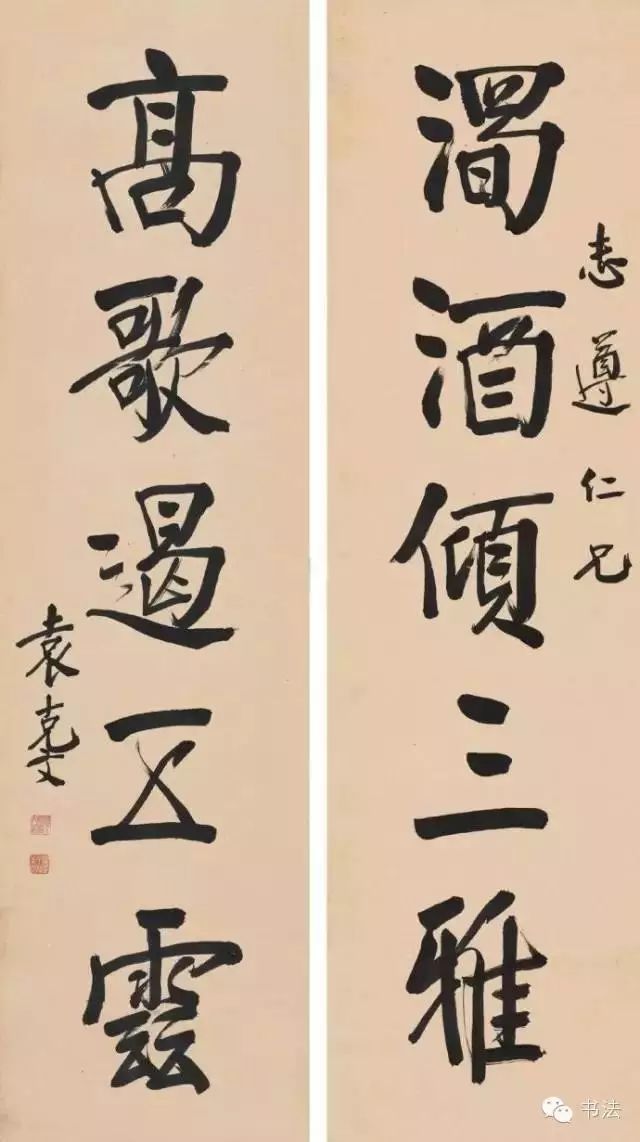 志遵仁兄
濁酒傾三雅
高歌遏五雲
袁克文
书法